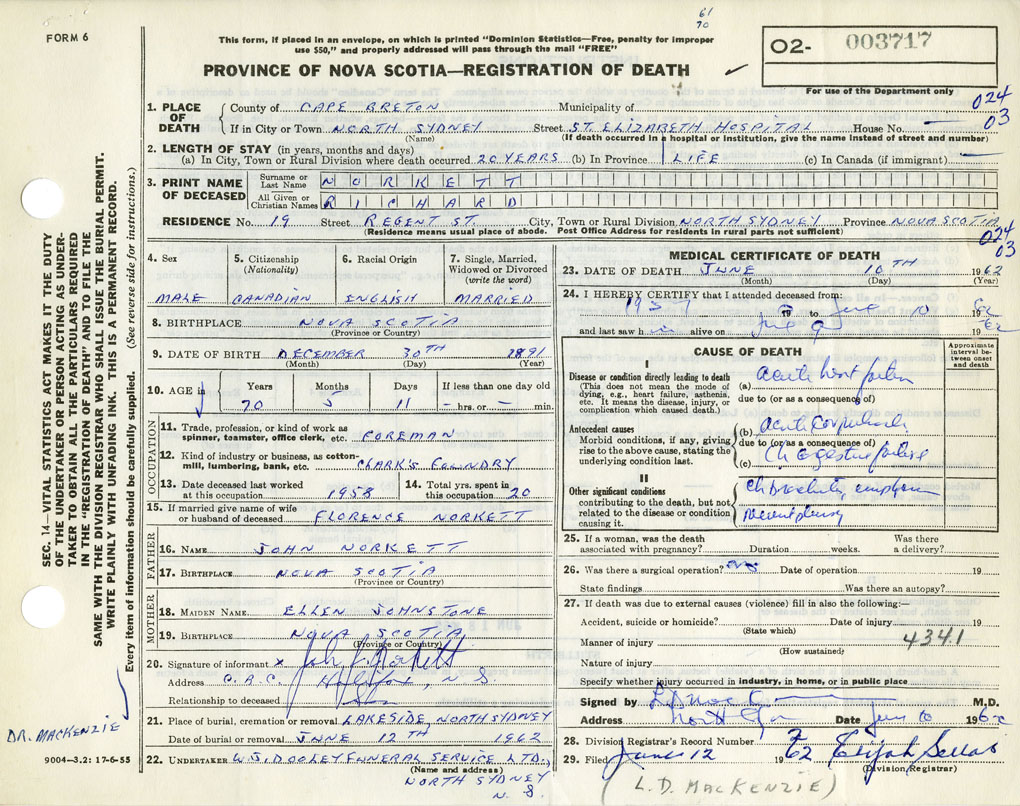 61
70
FORM 6
This form, if placed in an envelope, on which is printed "Dominion Statistics—Free, penalty for improper
use $50," and properly addressed will pass through the mail "FREE"
PROVINCE OF NOVA SCOTIA—REGISTRATION OF DEATH ✓
O2- 003717
For use of the Department only
024
03
1. PLACE OF DEATH { County of CAPE BRETON Municipality of
If in City or Town NORTH SYDNEY Street ST. ELIZABETH HOSPITAL House No. —
(Name) (If death occurred in a hospital or institution, give the name instead of street and number)
2. LENGTH OF STAY (in years, months and days)
(a) In City, Town or Rural Division where death occurred 20 YEARS (b) In Province LIFE (c) In Canada (if immigrant) —
3. PRINT NAME OF DECEASED { Surname or Last Name NORKETT
All Given or Christian Names RICHARD
RESIDENCE No. 19 Street REGENT ST. City, Town or Rural Division NORTH SYDNEY Province NOVA SCOTIA
(Residence means usual place of abode. Post Office Address for residents in rural parts not sufficient)
024
03
4. Sex MALE
5. Citizenship (Nationality) CANADIAN
6. Racial Origin ENGLISH
7. Single, Married, Widowed or Divorced (write the word) MARRIED
8. BIRTHPLACE NOVA SCOTIA
(Province or Country)
9. DATE OF BIRTH DECEMBER 30TH 1891
(Month) (Day) (Year)
10. AGE in Years Months Days If less than one day old
70 5 11 – hrs. or – min.
OCCUPATION
11. Trade, profession, or kind of work as
spinner, teamster, office clerk, etc. FOREMAN
12. Kind of industry or business, as cotton-
mill, lumbering, bank, etc. CLARK'S FOUNDRY
13. Date deceased last worked
at this occupation 1958
14. Total yrs. spent in
this occupation 20
15. If married give name of wife
or husband of deceased FLORENCE NORKETT
FATHER
16. NAME JOHN NORKETT
17. BIRTHPLACE NOVA SCOTIA
(Province or Country)
MOTHER
18. MAIDEN NAME ELLEN JOHNSTONE
19. BIRTHPLACE NOVA SCOTIA
(Province or Country)
20. Signature of informant x John Norkett
Address C.A.C. Halifax, N.S.
Relationship to deceased Son
21. Place of burial, cremation or removal LAKESIDE, NORTH SYDNEY
Date of burial or removal JUNE 12TH 1962
22. UNDERTAKER W.J. DOOLEY FUNERAL SERVICE LTD.
(Name and address)
NORTH SYDNEY
N.S.
MEDICAL CERTIFICATE OF DEATH
23. DATE OF DEATH JUNE 10TH 1962
(Month) (Day) (Year)
24. I HEREBY CERTIFY that I attended deceased from:
1957 19 to June 10 1962
and last saw him alive on June 9 1962
CAUSE OF DEATH
Approximate interval between onset and death
I
Disease or condition directly leading to death
(This does not mean the mode of
dying, e.g., heart failure, asthenia,
etc. It means the disease, injury, or
complication which caused death.)
(a) Acute heart failure
due to (or as a consequence of)
Antecedent causes
Morbid conditions, if any, giving
rise to the above cause, stating the
underlying condition last.
(b) Acute Cor pulmonale
due to (or as a consequence of)
(c) Ch Congestive failure
II
Other significant conditions
contributing to the death, but not
related to the disease or condition
causing it.
Ch bronchitis, emphysema
Recent pleurisy
25. If a woman, was the death
associated with pregnancy? Duration weeks. Was there
a delivery?
26. Was there a surgical operation? no Date of operation 19
State findings Was there an autopsy?
27. If death was due to external causes (violence) fill in also the following:—
Accident, suicide or homicide? Date of injury 19
(State which)
Manner of injury 434.1
(How sustained)
Nature of injury
Specify whether injury occurred in industry, in home, or in public place
Signed by M.D.
Address North Sydney Date June 10 1962
28. Division Registrar's Record Number
29. Filed June 12 1962 Elijah
(Division Registrar)
(L.D. MACKENZIE)
SEC. 14—VITAL STATISTICS ACT MAKES IT THE DUTY
OF THE UNDERTAKER OR PERSON ACTING AS UNDER-
TAKER TO OBTAIN ALL THE PARTICULARS REQUIRED
IN THE "REGISTRATION OF DEATH" AND TO FILE THE
SAME WITH THE DIVISION REGISTRAR WHO SHALL ISSUE THE BURIAL PERMIT.
WRITE PLAINLY WITH UNFADING INK. THIS IS A PERMANENT RECORD.
Every item of information should be carefully supplied. (See reverse side for instructions.)
DR. MACKENZIE
9004—3.2: 17-6-55